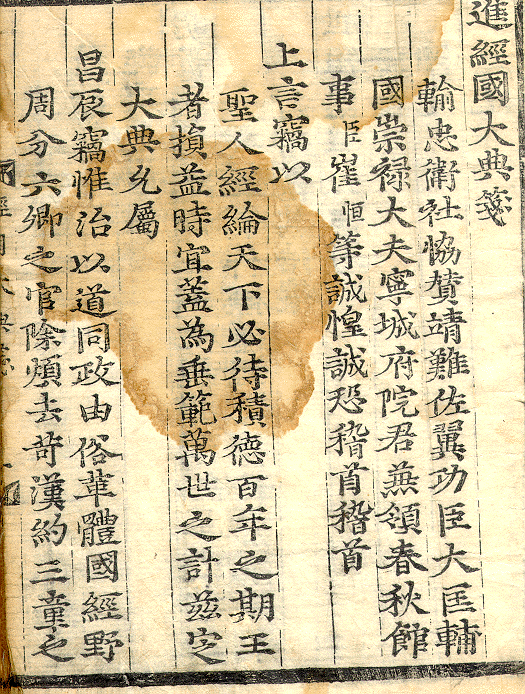 進經國大典箋
輸忠衛社恊賛靖難佐翼功臣大匡輔
國崇祿大夫寧城府院君兼領春秋館
事臣崔恒等誠惶誠恐稽首稽首
上言竊以
聖人經綸天下必待積德百年之期王
者損益時宜蓋為垂範萬世之計玆定
大典允屬
昌辰竊惟治以道同政由俗革體國經野
周分六卿之官除煩去苛漢約三章之